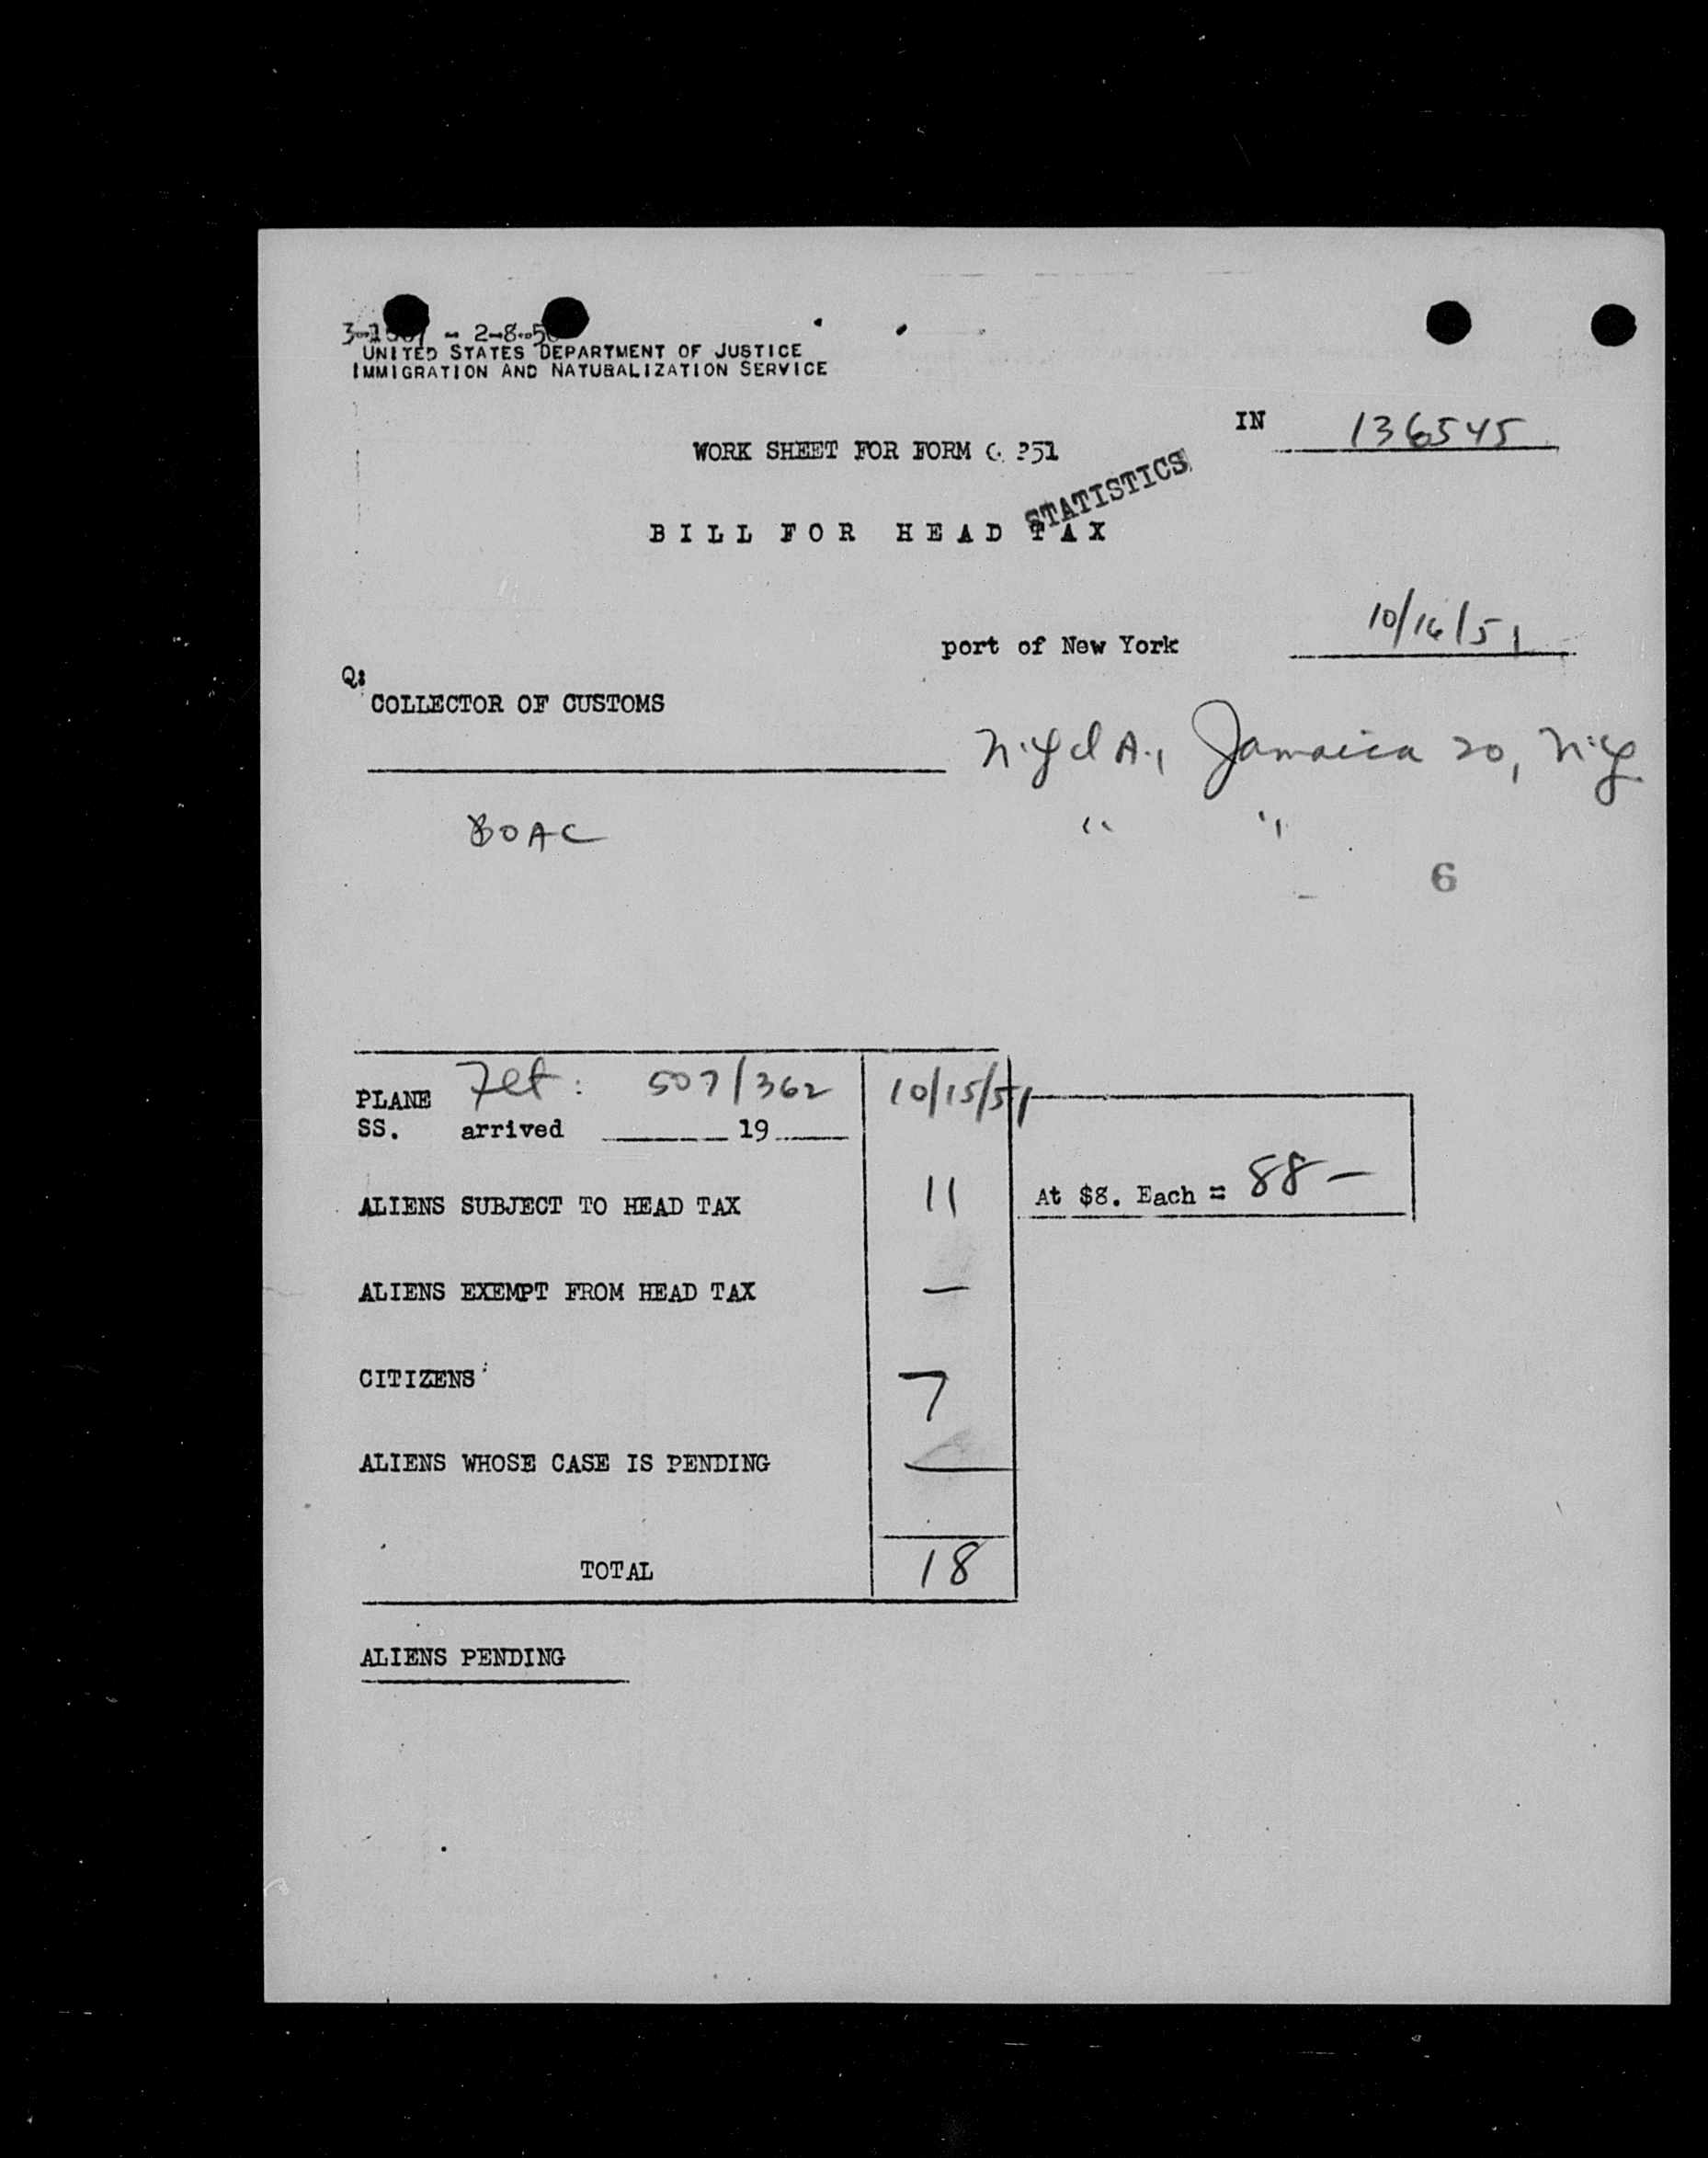 - 2-8-5
UNITED STATES DEPARTMENT OF JUSTICE
IMMIGRATION AND NATURALIZATION SERVICE
IN 136545
WORK SHEET FOR FORM G 251
STATISTICS
BILL FOR HEAD TAX
port of New York 10/16/51
Q:
COLLECTOR OF CUSTOMS
Jamaica 20, N.Y.
BOAC " "
6
PLANE Flt: 507/362 10/15/51
SS. arrived 19
ALIENS SUBJECT TO HEAD TAX 11 At $8. Each = 88 -
ALIENS EXEMPT FROM HEAD TAX —
CITIZENS 7
ALIENS WHOSE CASE IS PENDING —
TOTAL 18
ALIENS PENDING